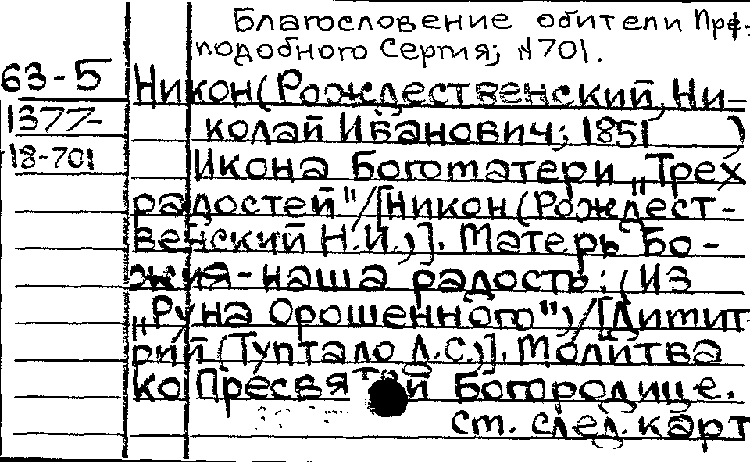 Благословение обители Пре-
подобного Сергия; №701.
63-5
Никон(Рождественский, Ни-
1377-
колай Иванович; 1851 )
18-701
Икона Богоматери „Трех
радостей"/[Никон(Рождест-
венский Н.И.)]. Матерь Бо-
жия-наша радость: (Из
„Руна Орошенного")/[Димит-
рий (Туптало Д.С.)]. Молитва
ко Пресвятой Богородице.
ст. след. карт